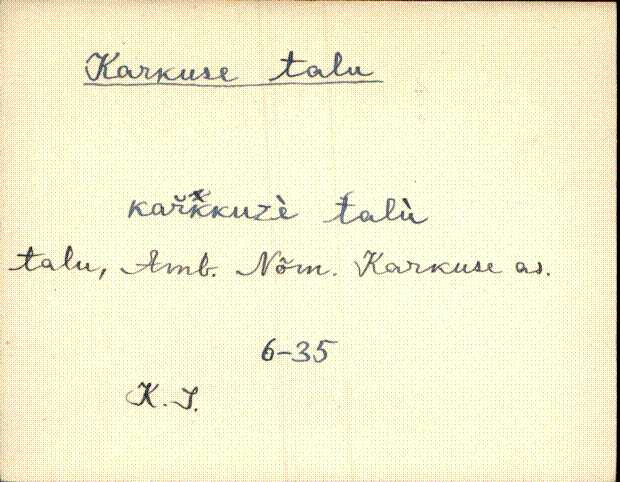 Karkuse talu
kařk̆kuzè talù
talu, Amb. Nõm. Karkuse as.
6-35
K. J.